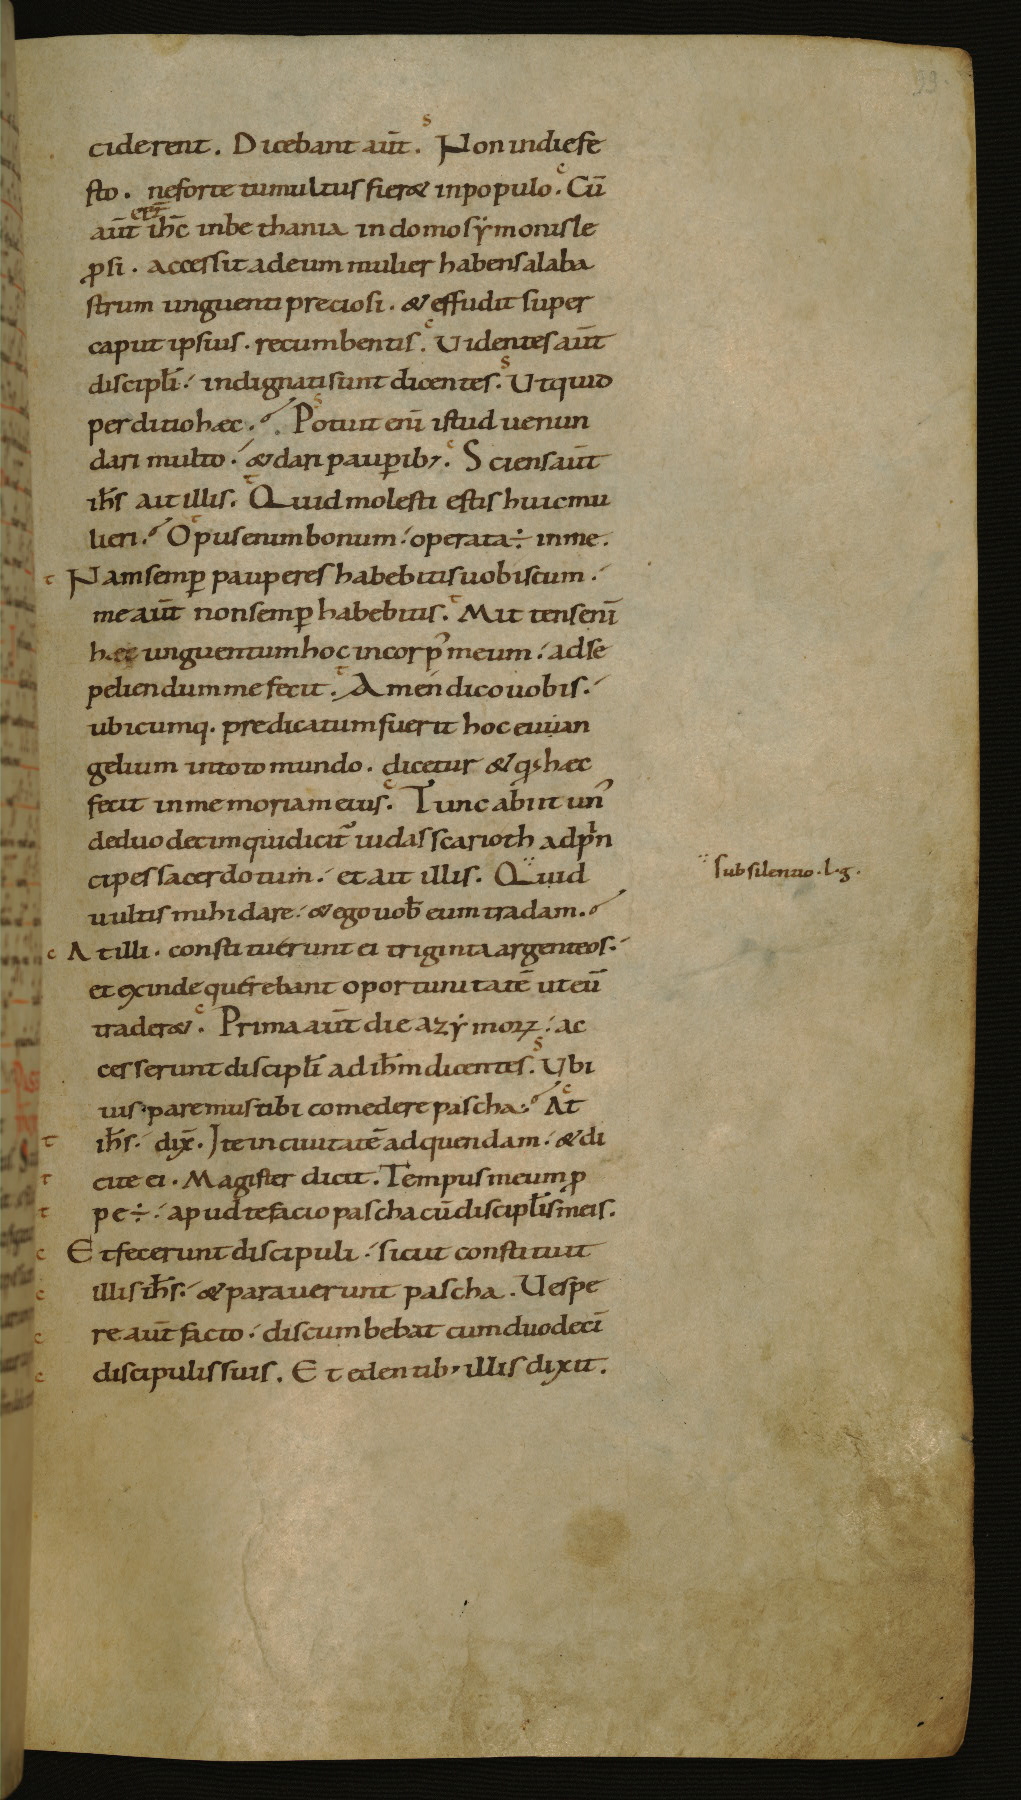 99.
ciderent. Dicebant aūt. Non indie fe
sto. ne forte tumultus fieret in populo. Cū
aūt ēēt ih̄c inbethania in domo sẏmonis le
ꝓsi. accessit ad eum mulier habens alaba
strum unguenti preciosi. & effudit super
caput ipsius. recumbentis. Uidentes aūt
discipl̄i indignati sunt dicentes. Utquid
perditio hæc. Potuit eni̅ istud uenun
dari multo. & dari pauꝑib;. Sciens aūt
ih̄s ait illis. Quid molesti estis huic mu
lieri. Opus enim bonum operata ÷ in me.
t Nam semꝑ pauperes habebitis uobiscum.
me aūt non semꝑ habebitis. Mittens eni̅
hæc unguentum hoc in corpꝰ meum. ad se
peliendum me fecit. Amen dico uobis.
ubicumq. predicatum fuerit hoc euuan
gelium in toto mundo. dicetur & qꝫ hæc
fecit in memoriam eius. Tunc abiit unꝰ
de duodecim qui dicit᷑ iudas scarioth ad prin
cipes sacerdotum. et ait illis. Quid
uultis mihi dare. & ego uob̄ eum tradam.
c At illi. constituerunt ei triginta argenteos.
et exinde querebant oportunitatē ut eū
traderet. Prima aūt die azẏmoꝝ. ac
cesserunt discipl̄i ad ih̄m dicentes. Ubi
uis paremus tibi comedere pascha. At
t ih̄s. dix̄. Ite in ciuitatē ad quendam. & di
t cite ei. Magister dicit. Tempus meum ꝓ
t pe ÷. apud te facio pascha cū discipl̄is meis.
c Et fecerunt discipuli. sicut constituit
c illis ih̄s. & parauerunt pascha. Uespe
c re aūt facto. discumbebat cum duodeci̅
c discipulis suis. Et edentib; illis dixit.
sub silentio. l. g.